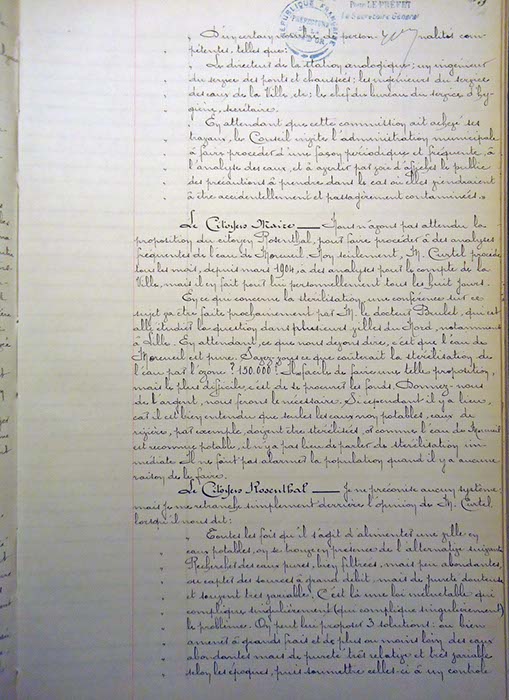 Pour LE PRÉFET
Le Secrétaire Général
RÉPUBLIQUE FRANÇAISE
" D'un certain nombre de person- nalités com-
" pétentes, telles que:
" Le directeur de la station ; un ingénieur
" du service des ponts et chaussées; les ingénieurs du service
" des eaux de la Ville, etc; le chef du bureau du service d'Hy-
" giène, secrétaire.
" En attendant que cette commission ait achevé ses
" travaux, le Conseil invite l'administration municipale
" à faire procéder d'une façon périodique et fréquente, à
" l'analyse des eaux, et à avertir par voie d'affiches le public
" des précautions à prendre dans le cas où elles viendraient
" à être accidentellement et passagèrement contaminées. »
Le Citoyen Maire — Nous n'avons pas attendu la
proposition du citoyen Rosenthal, pour faire procéder à des analyses
fréquentes de l'eau de Morcueil. Non seulement, M. Curtel procède
tous les mois, depuis mars 1904, à des analyses pour le compte de la
Ville, mais il en fait pour lui personnellement tous les huit jours.
En ce que concerne la stérilisation, une conférence sur ce
sujet va être faite prochainement par M. le docteur Brulet, qui est
allé étudier la question dans plusieurs villes du Nord, notamment
à Lille. En attendant, ce que nous devons dire, c'est que l'eau de
Morcueil est pure. Savez-vous ce que coûterait la stérilisation de
l'eau par l'ozone? 150.000f. Il est facile de faire une telle proposition,
mais le plus difficile, c'est de se procurer les fonds. Donnez-nous
de l'argent, nous ferons le nécessaire. Si cependant il y a lieu,
car il est bien entendu que seules les eaux non potables, eaux de
rivière, par exemple, doivent être stérilisées, or comme l'eau de Morcueil
est reconnue potable, il n'y a pas lieu de parler de stérilisation im-
médiate. Il ne faut pas alarmer la population quand il n'y a aucune
raison de le faire.
Le Citoyen Rosenthal — Je ne préconise aucun système;
mais je me retranche simplement derrière l'opinion de M. Curtel
lorsqu'il nous dit:
" Toutes les fois qu'il s'agit d'alimenter une ville en
" eaux potables, on se trouve en présence de l'alternative suivante
" Rechercher des eaux pures, bien filtrées, mais peu abondantes,
" ou capter des sources à grand débit, mais de pureté douteuse
" et souvent très variable. C'est là une loi inéluctable qui
" complique singulièrement (qui complique singulièrement)
" le problème. On peut lui proposer 3 solutions: ou bien
" amener à grands frais et de plus ou moins loin des eaux
" abondantes mais de pureté très relative et très variable
" selon les époques, puis soumettre celles-ci à un contrôle